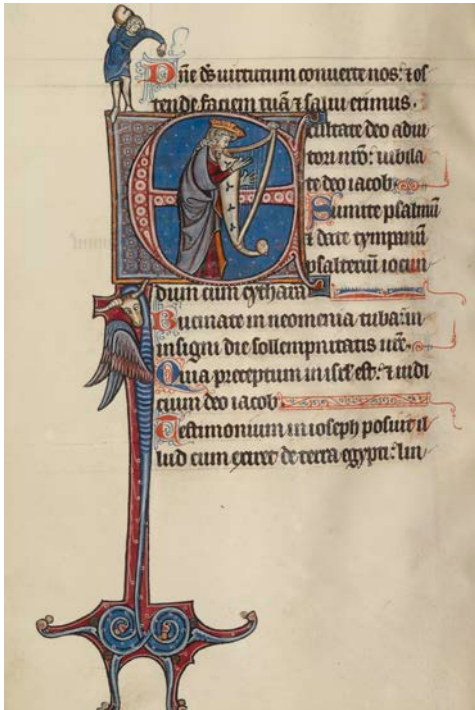 Dñe ds uirtutum conuerte nos: ⁊ os
tende faciem tuã ⁊ salui erimus.
Exultate deo adiu
tori nr̃o: iubila
te deo iacob.
Sumite psalmũ
⁊ date tympanũ
psalteriũ iocun
dium cum cythara
Bucinate in neomenia tuba: in
insigni die sollempnitatis ur̃e.
Quia preceptum in isrl̃ est: ⁊ iudi
cium deo iacob.
Testimonium in ioseph posuit il
lud cum exiret de terra egypti: lin